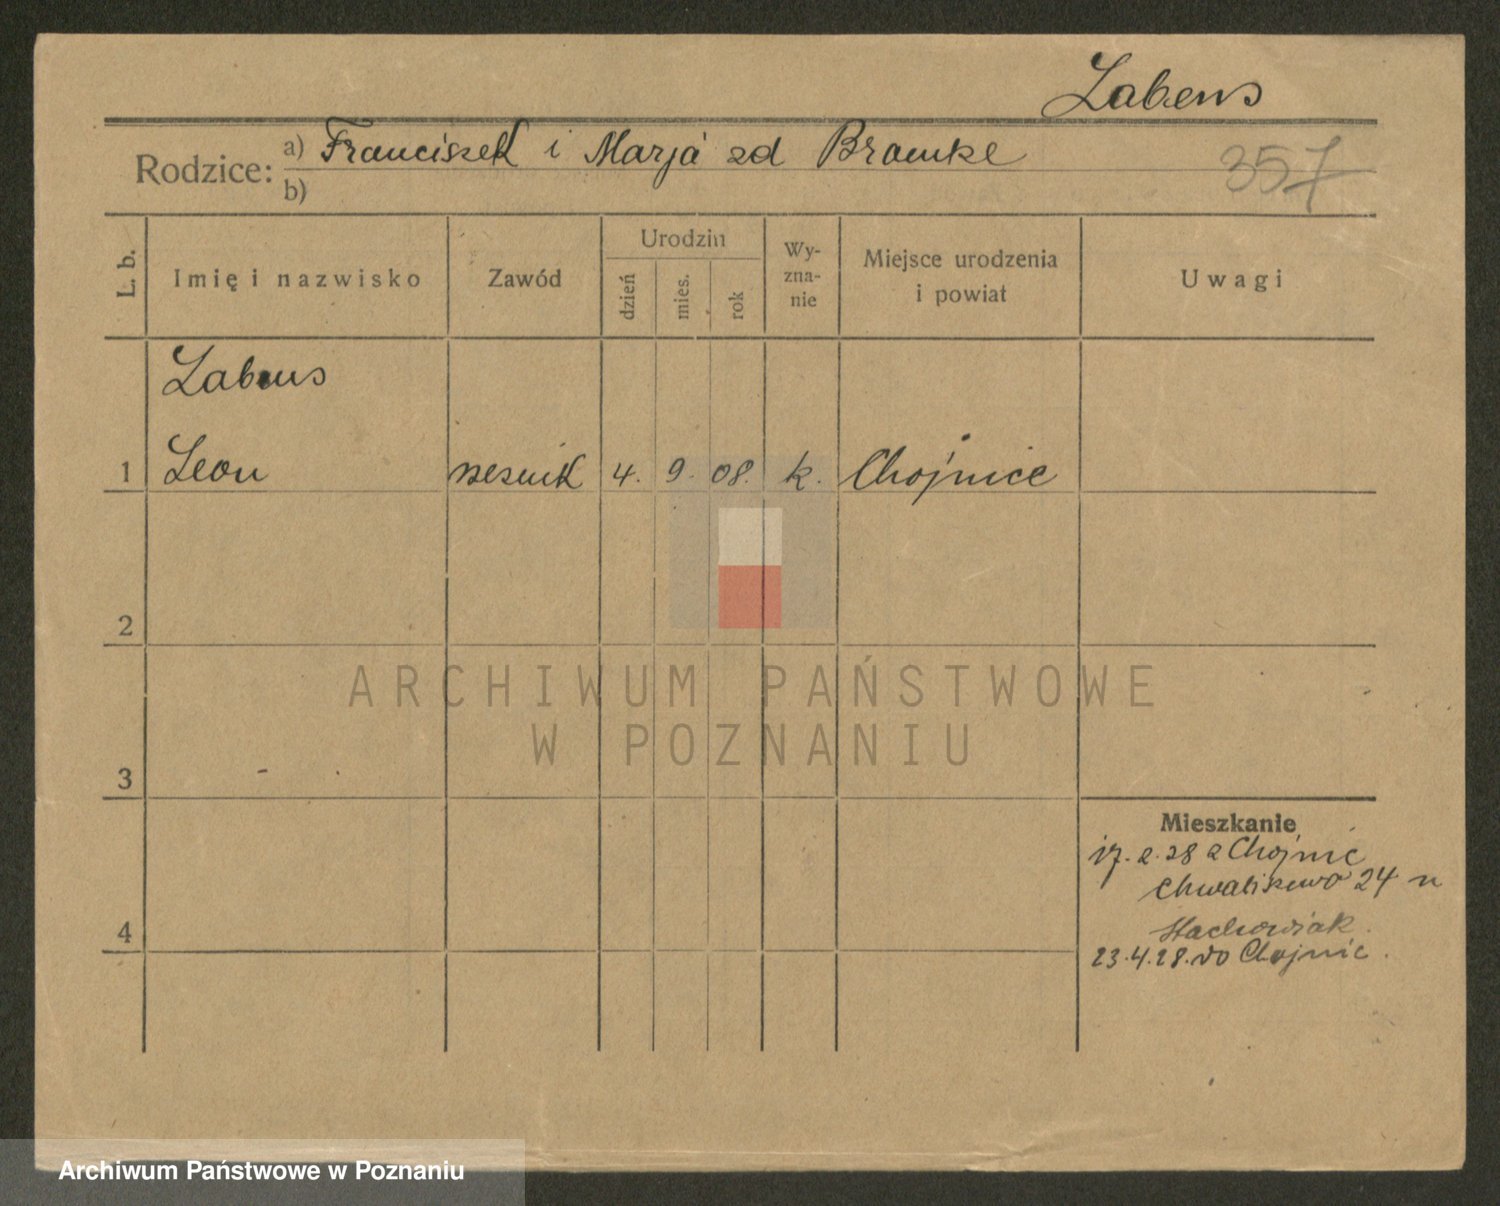 Labens
Rodzice: a) Franciszek i Marja zd Bramke
b)
357
L. b. Imię i nazwisko Zawód Urodzin dzień mies. rok Wyznanie Miejsce urodzenia i powiat Uwagi
Labens
1 Leon 4. 9. 08. k. Chojnice
2
3
4
Mieszkanie
17.2.28 z Chojnic
Chwaliszewo 24 u
Stachowiak.
23.4.28. do Chojnic.
ARCHIWUM PAŃSTWOWE
W POZNANIU
Archiwum Państwowe w Poznaniu